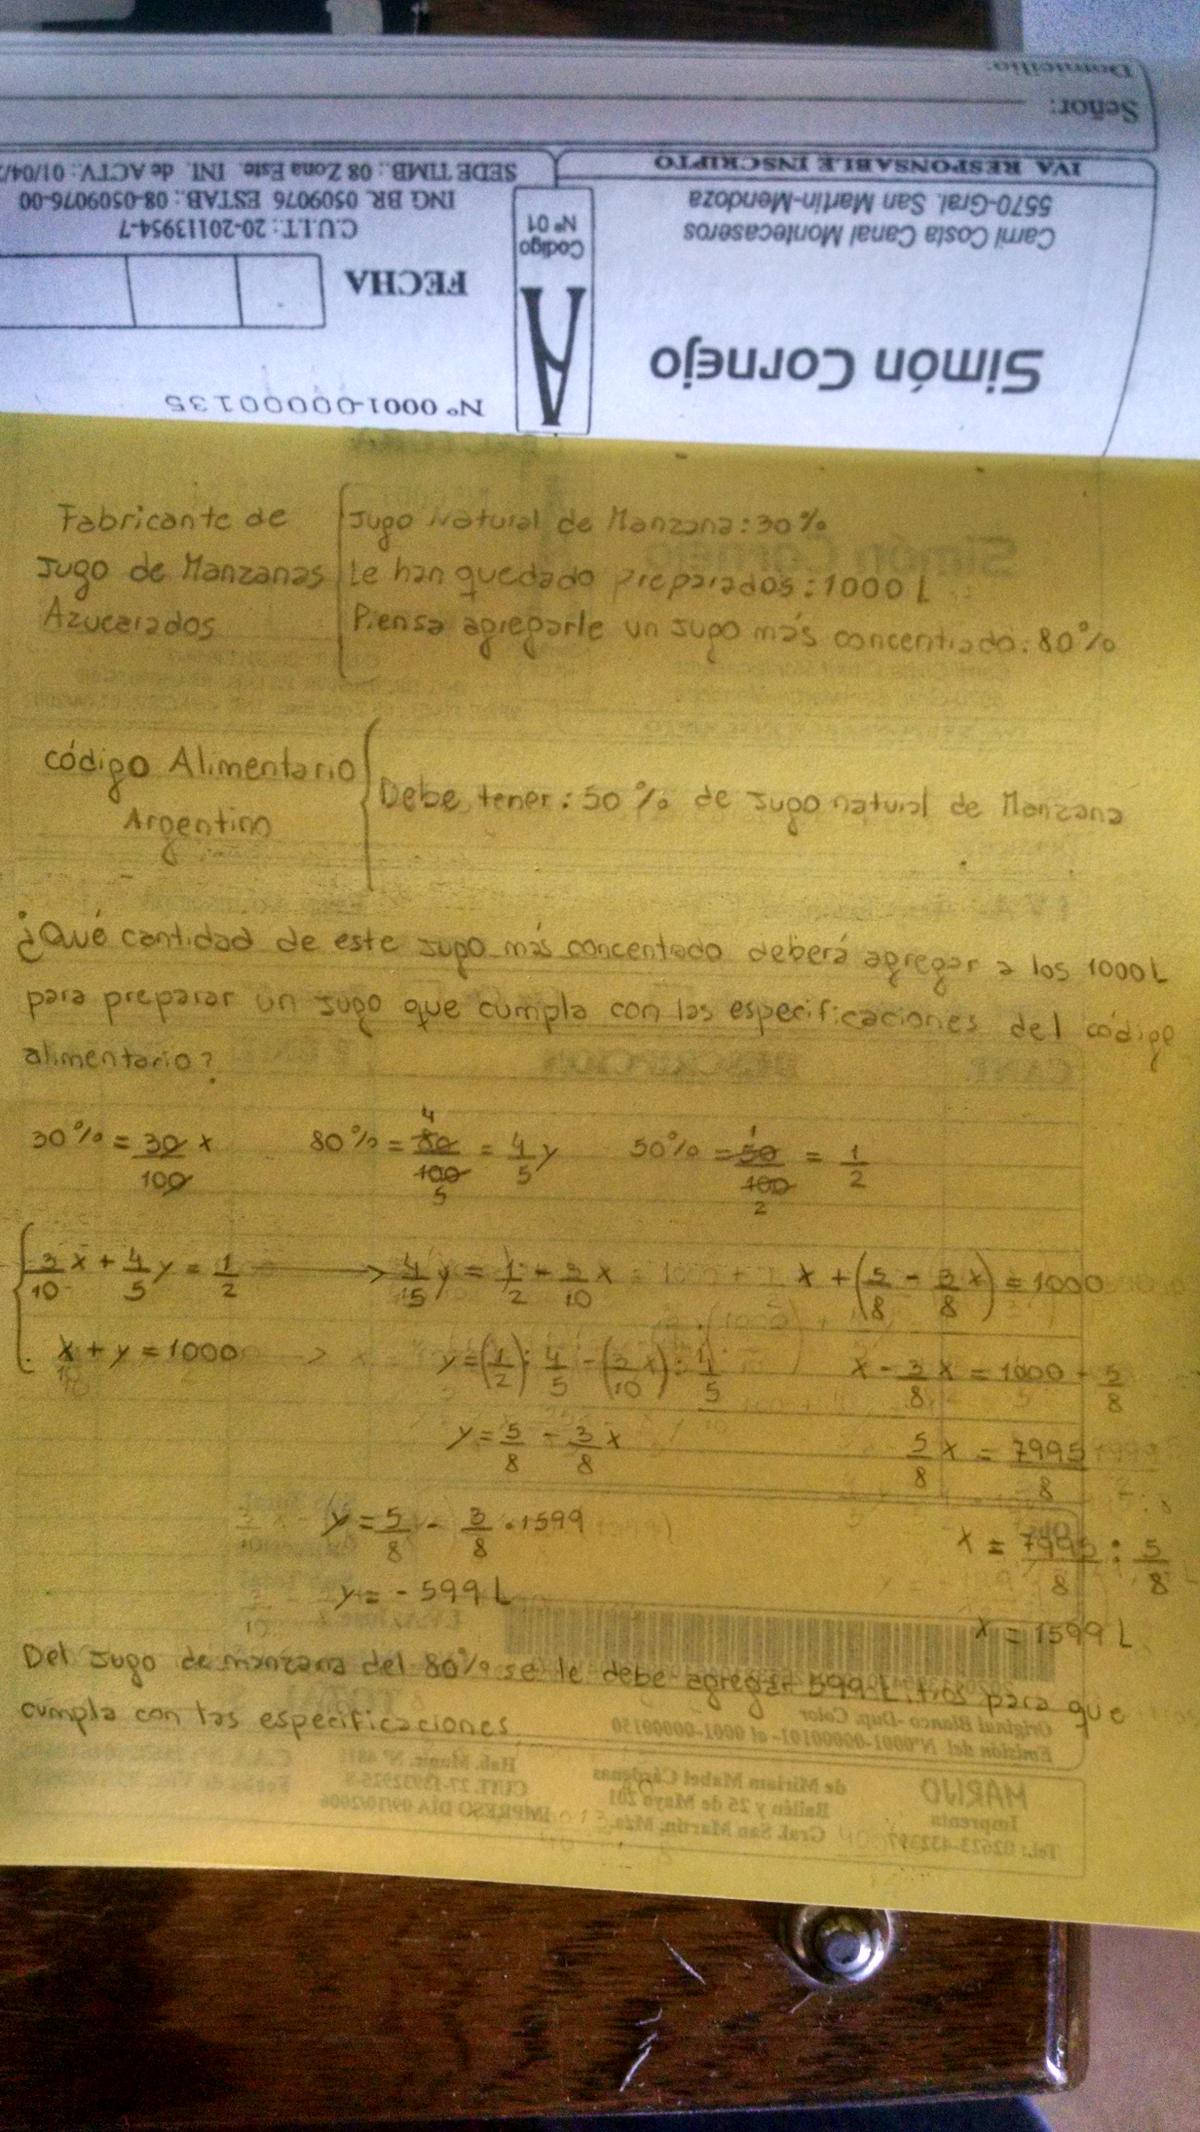 Domicilio:
Señor:
IVA RESPONSABLE INSCRIPTO
SEDE TIMB.: 08 Zona Este. INI. de ACTV.: 01/04/
5570-Gral. San Martín-Mendoza
ING BR. 0509076 ESTAB.: 08-0509076-00
Carril Costa Canal Montecaseros
C.U.I.T.: 20-20113954-7
Codigo
Nº 01
A
FECHA
Simón Cornejo
Nº 0001-00000135
Fabricante de
Jugo de Manzanas
Azucarados
Jugo Natural de Manzana: 30%
Le han quedado preparados: 1000 L
Piensa agregarle un jugo más concentrado: 80%
código Alimentario
Argentino
Debe tener: 50% de jugo natural de Manzana
¿Qué cantidad de este jugo más concentrado deberá agregar a los 1000L
para preparar un jugo que cumpla con las especificaciones del código
alimentario?
30% = 30/100 x 80% = 80/100 = 4/5 y 50% = 50/100 = 1/2
4 5 1 2
3/10 x + 4/5 y = 1/2 → 4/5 y = 1/2 - 3/10 x x + (5/8 - 3/8 x) = 1000
x + y = 1000 y = (1/2) : 4/5 - (3/10 x) : 4/5 x - 3/8 x = 1000 - 5/8
y = 5/8 - 3/8 x 5/8 x = 7995/8
y = 5/8 - 3/8 · 1599 x = 7995/8 : 5/8
y = - 599 L x = 1599 L
Del jugo de manzana del 80% se le debe agregar 599 Litros para que
cumpla con las especificaciones.
Original Blanco -Dup. Color
Emisión del Nº0001-00000101- al 0001-00000150
MARIJO
Imprenta
Tel.: 02623-432397
de Miriam Mabel Cárdenas
Bailén y 25 de Mayo 201
Gral. San Martín, Mza.
Hab. Munic. Nº 4811
IMPRESO DÍA 09/10/2006